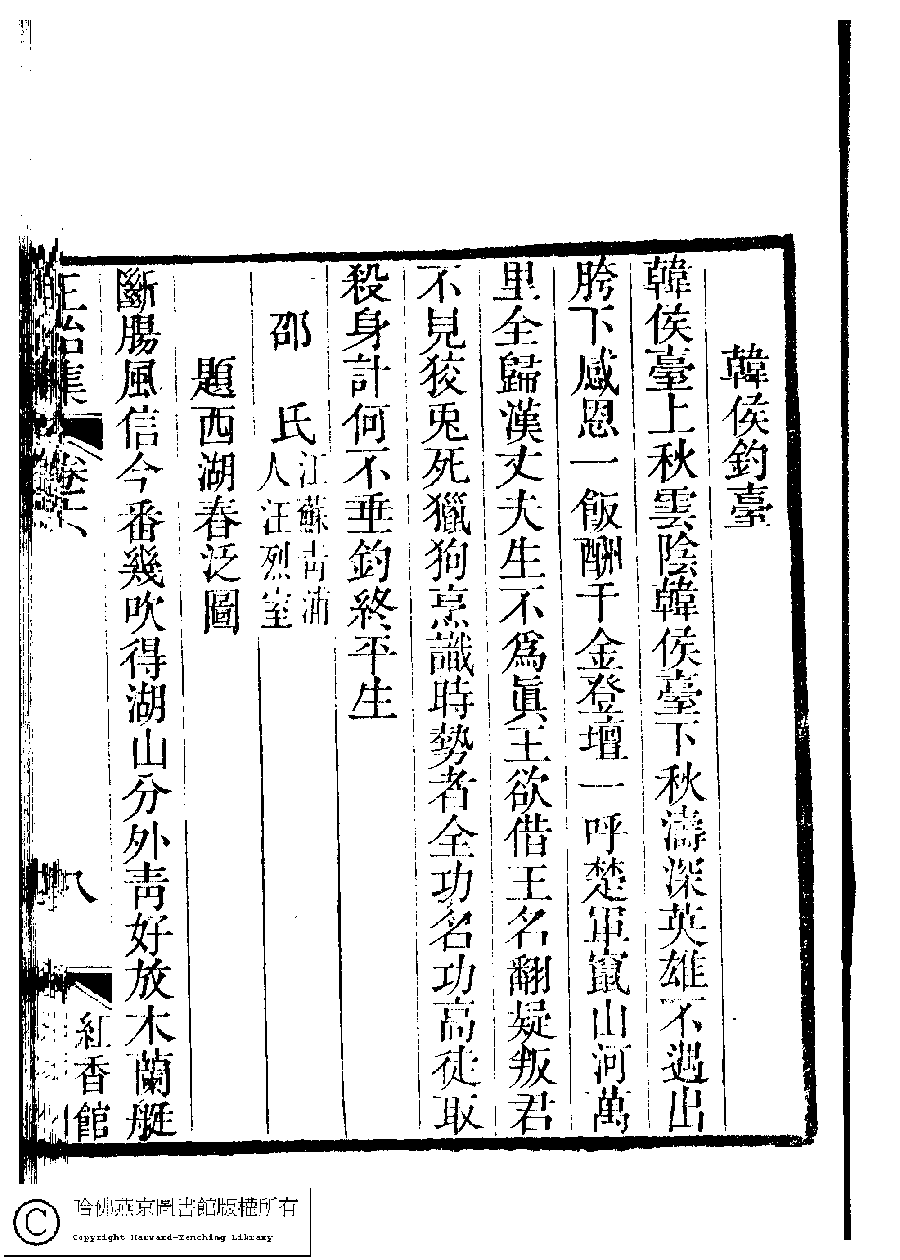 韓侯釣臺
韓侯臺上秋雲陰韓侯臺下秋濤深英雄不遇出
胯下感恩一飯酬千金登壇一呼楚軍竄山河萬
里全歸漢丈夫生不爲眞王欲借王名翻疑叛君
不見狡兎死獵狗烹識時勢者全功名功高徒取
殺身計何不垂釣終平生
邵氏
江蘇靑浦
人汪烈室
題西湖春泛圖
斷腸風信今番幾吹得湖山分外靑好放木蘭艇
正始集
卷六
八
紅香館
哈佛燕京圖書館版權所有
Copyright Harvard-Yenching Library